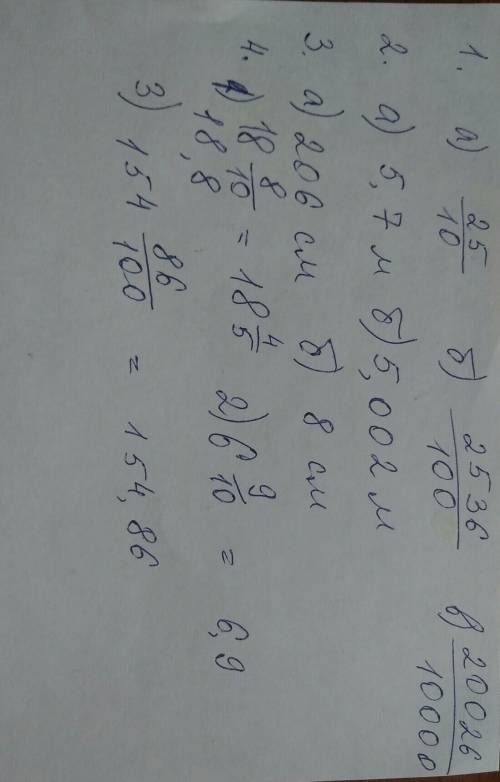 1. а) 25/10 б) 2536/100 в) 20026/10000
2. а) 5,7 м б) 5,002 м
3. а) 206 см б) 8 см
4. 1) 18 8/10 = 18 4/5 2) 6 9/10 = 6,9
18,8
3) 154 86/100 = 154,86